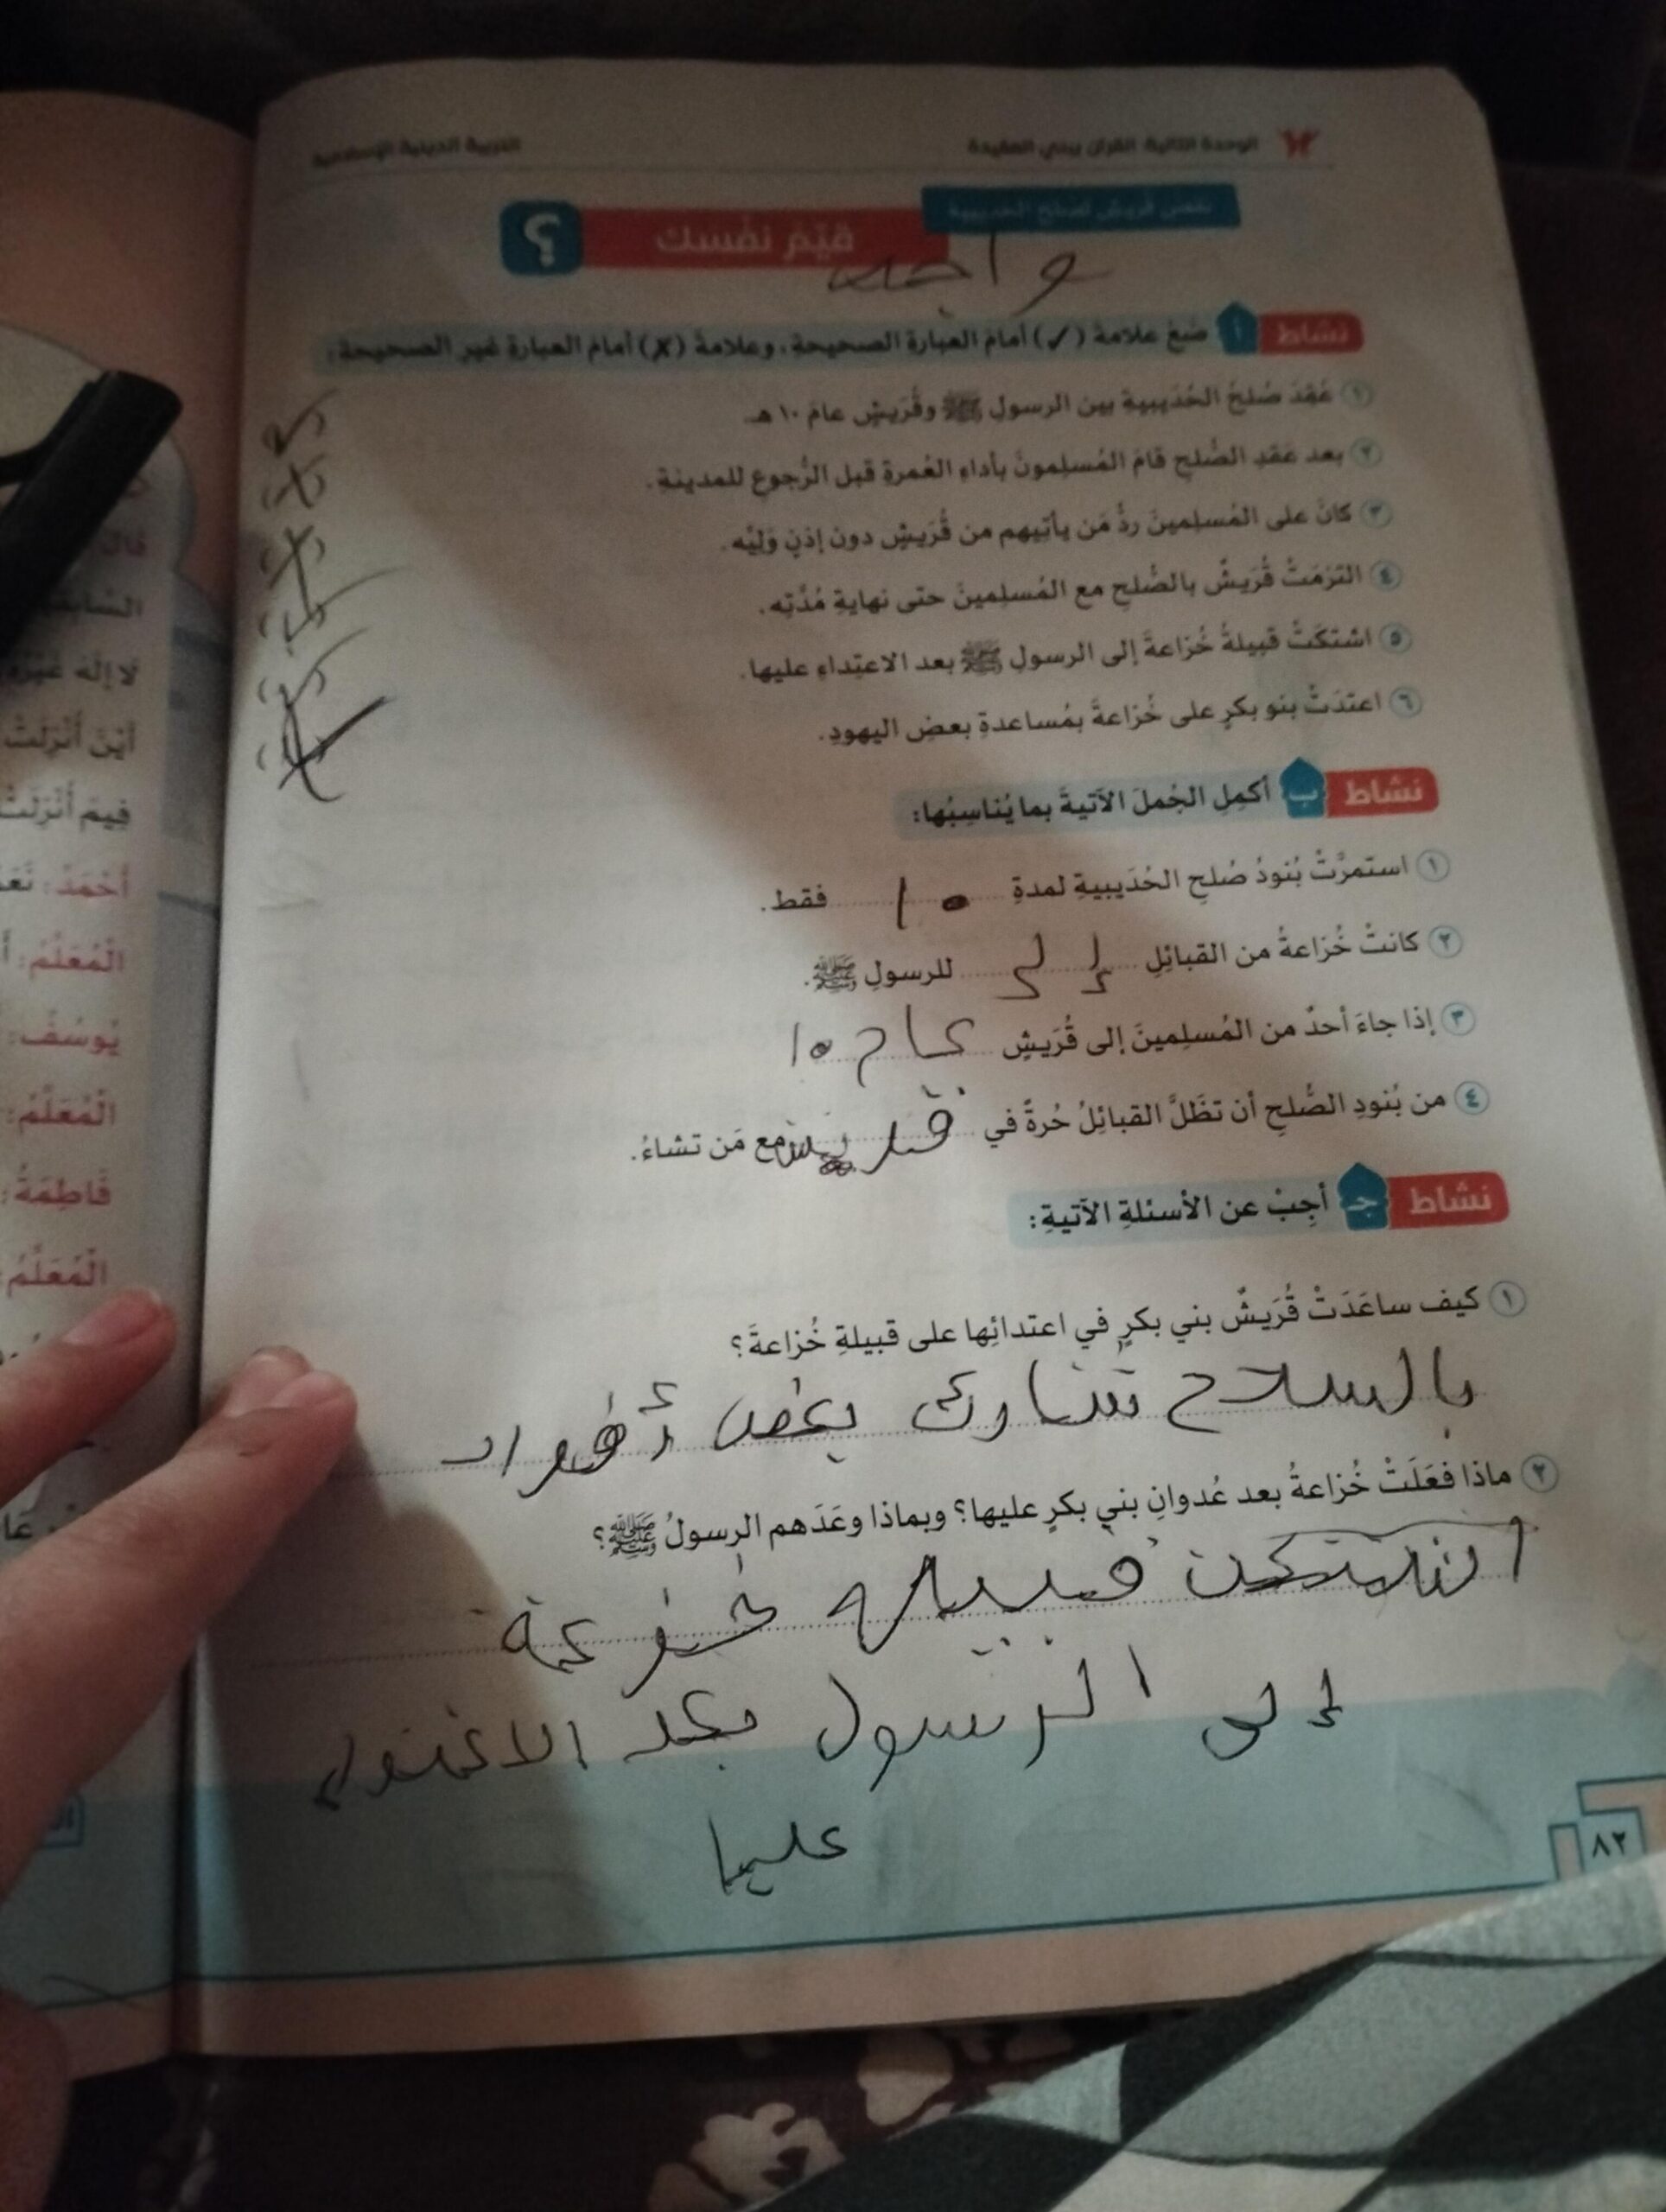 الوحدة الثانية: القرآن يبني العقيدة
التربية الدينية الإسلامية
نقض قريش لصلح الحديبية
قيّم نفسك
؟
واجب
نشاط أ ضع علامة (✓) أمام العبارة الصحيحة، وعلامة (✗) أمام العبارة غير الصحيحة:
١ عُقِدَ صُلحُ الحُدَيبية بين الرسولِ ﷺ وقُرَيشٍ عامَ ١٠ هـ. (✓)
٢ بعد عَقدِ الصُّلحِ قامَ المُسلِمونَ بأداءِ العُمرةِ قبلَ الرُّجوعِ للمدينةِ. (✗)
٣ كانَ على المُسلِمينَ ردُّ مَن يأتيهم من قُرَيشٍ دون إذنِ وَلِيِّه. (✗)
٤ التزمَتْ قُرَيشٌ بالصُّلحِ مع المُسلِمينَ حتى نهايةِ مُدَّتِه. (✓)
٥ اشتكَتْ قبيلةُ خُزاعةَ إلى الرسولِ ﷺ بعد الاعتِداءِ عليها. (✓)
٦ اعتدَتْ بنو بكرٍ على خُزاعةَ بمُساعدةِ بعضِ اليهودِ. (✗)
نشاط ب أكمِلِ الجُملَ الآتيةَ بما يُناسِبُها:
١ استمرَّتْ بُنودُ صُلحِ الحُدَيبيةِ لمدةِ ١٠ فقط.
٢ كانتْ خُزاعةُ من القبائلِ للرسولِ ﷺ.
٣ إذا جاءَ أحدٌ من المُسلِمينَ إلى قُرَيشٍ عام ١٠
٤ من بُنودِ الصُّلحِ أن تظَلَّ القبائلُ حُرةً في قريش مع مَن تشاءُ.
نشاط جـ أجِبْ عن الأسئلةِ الآتيةِ:
١ كيف ساعَدَتْ قُرَيشٌ بني بكرٍ في اعتدائِها على قبيلةِ خُزاعةَ؟
بالسلاح تشارك بعض أفراد
٢ ماذا فعَلَتْ خُزاعةُ بعد عُدوانِ بني بكرٍ عليها؟ وبماذا وعَدَهم الرسولُ ﷺ؟
اشتكت قبيله خزعة
إلى الرسول بعد
عليها
٨٢
السابقة
لا إله غيره
أين أنزلت
فيم أنزلت
أحمد: نعم
المعلم:
يوسف:
المعلم:
فاطمة:
المعلم: